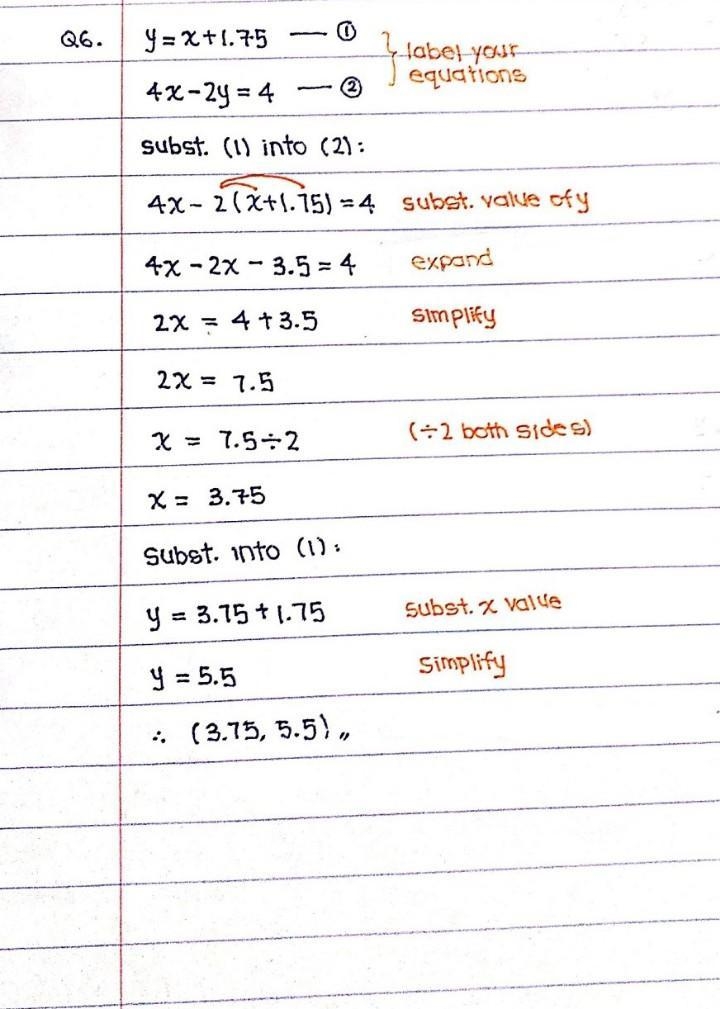 Q6. y = x + 1.75 — ① } label your
4x - 2y = 4 — ② equations
subst. (1) into (2):
4x - 2(x+1.75) = 4 subst. value of y
4x - 2x - 3.5 = 4 expand
2x = 4 + 3.5 simplify
2x = 7.5
x = 7.5 ÷ 2 (÷2 both sides)
x = 3.75
subst. into (1):
y = 3.75 + 1.75 subst. x value
y = 5.5 simplify
∴ (3.75, 5.5) „